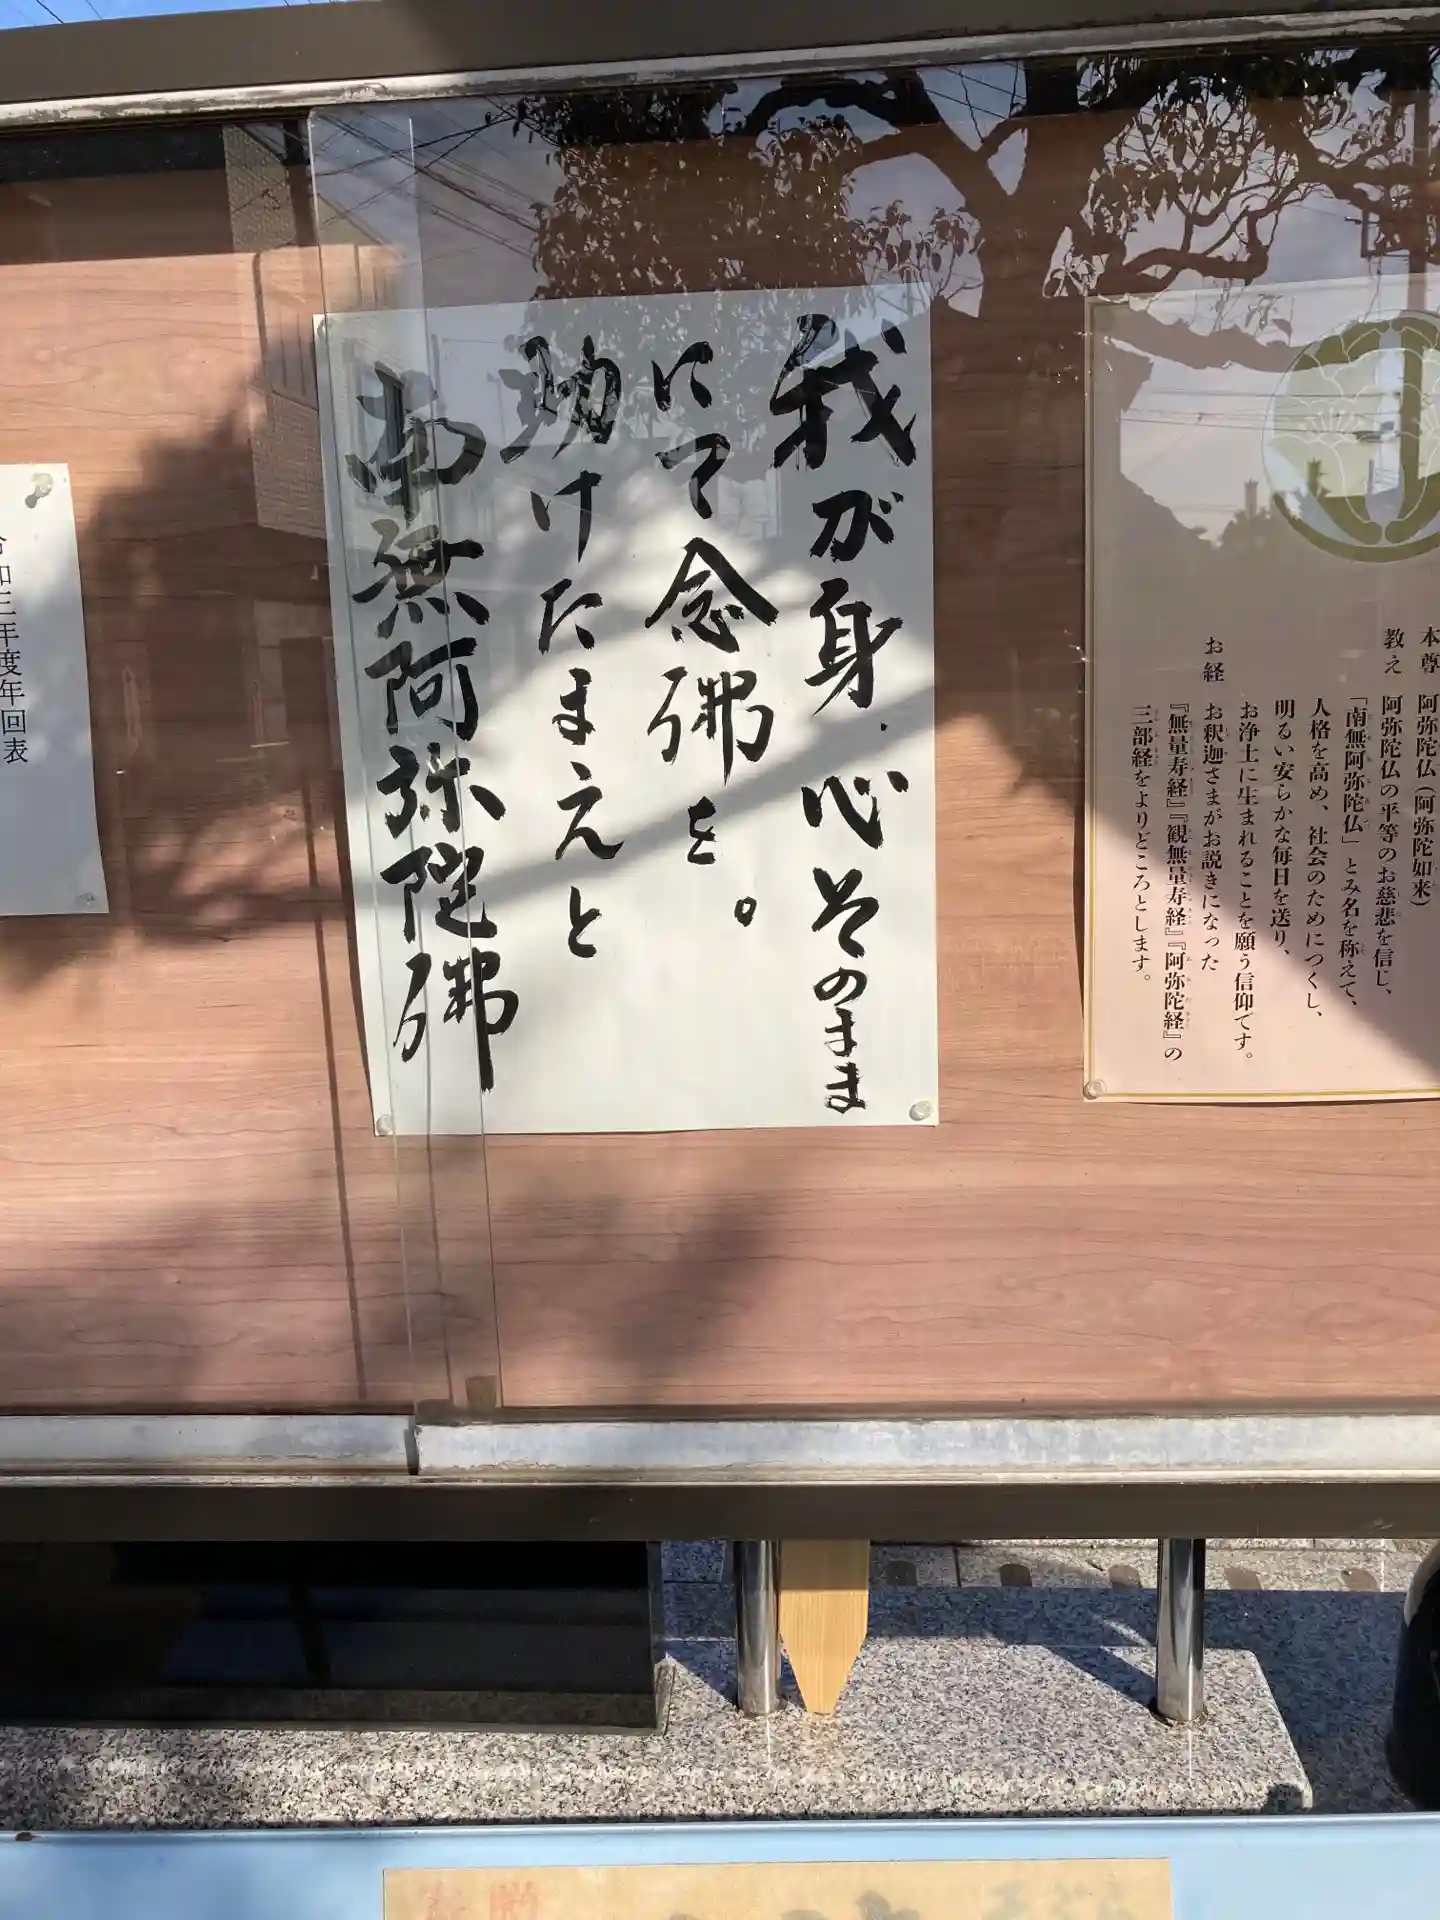 本尊 阿弥陀仏(阿弥陀如来)
教え 阿弥陀仏の平等のお慈悲を信じ、
「南無阿弥陀仏」とみ名を称えて、
人格を高め、社会のためにつくし、
明るい安らかな毎日を送り、
お浄土に生まれることを願う信仰です。
お経 お釈迦さまがお説きになった
『無量寿経』『観無量寿経』『阿弥陀経』の
三部経をよりどころとします。
我が身.心そのまま
にて念佛を。
助けたまえと
南無阿弥陀佛
令和三年度年回表